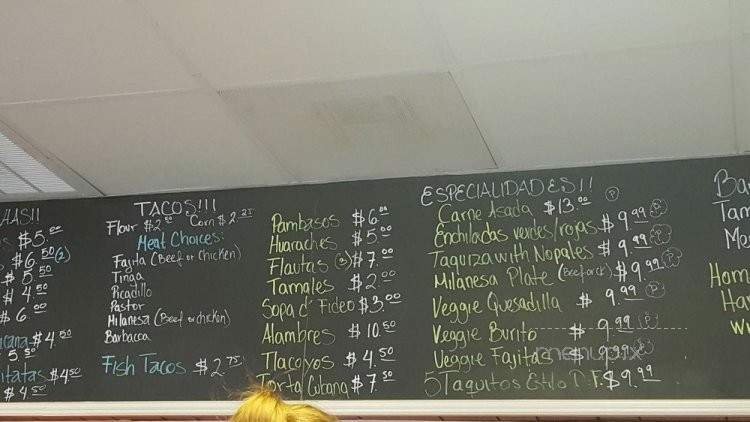 $5.00
$6.50 (2)
$5.50
$4.50
$6.00
$4.50
$5.50
$4.50
$4.50
TACOS!!!
Flour $2.00 Corn $2.25
Meat Choices:
Fajita (Beef or Chicken)
Tinga
Picadillo
Pastor
Milanesa (Beef or chicken)
Barbacca
Fish Tacos $2.75
Pambasos $6.00
Huaraches $5.00
Flautas $7.00
Tamales $2.00
Sopa d' Fideo $3.00
Alambres $10.50
Tlacoyos $4.50
Torta Cubana $7.50
ESPECIALIDADES!!
Carne Asada $13.00 P
Enchiladas verdes/rojas $9.99 P
Taquiza with Nopales $9.99 P
Milanesa Plate (Beef or ck) $9.99 P
Veggie Quesadilla $9.99 P
Veggie Burito $9.99 P
Veggie Fajitas $9.99 P
5 Taquitos Estilo D.F. $9.99
menupix